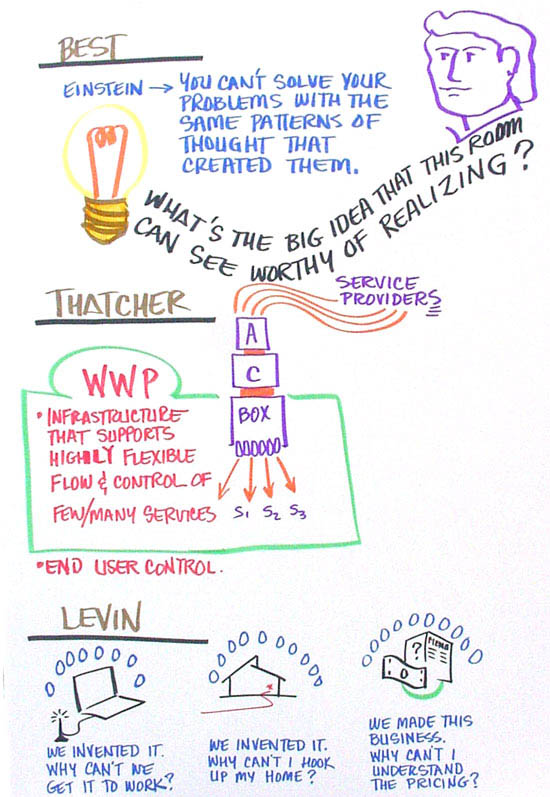 BEST
EINSTEIN → YOU CAN'T SOLVE YOUR
PROBLEMS WITH THE
SAME PATTERNS OF
THOUGHT THAT
CREATED THEM.
WHAT'S THE BIG IDEA THAT THIS ROOM
CAN SEE WORTHY OF REALIZING?
THATCHER
SERVICE
PROVIDERS
A
C
BOX
WWP
• INFRASTRUCTURE
THAT SUPPORTS
HIGHLY FLEXIBLE
FLOW & CONTROL OF
FEW/MANY SERVICES
S1 S2 S3
• END USER CONTROL.
LEVIN
WE INVENTED IT.
WHY CAN'T WE
GET IT TO WORK?
WE INVENTED IT.
WHY CAN'T I HOOK
UP MY HOME?
?
MENU
0
WE MADE THIS
BUSINESS.
WHY CAN'T I
UNDERSTAND
THE PRICING?